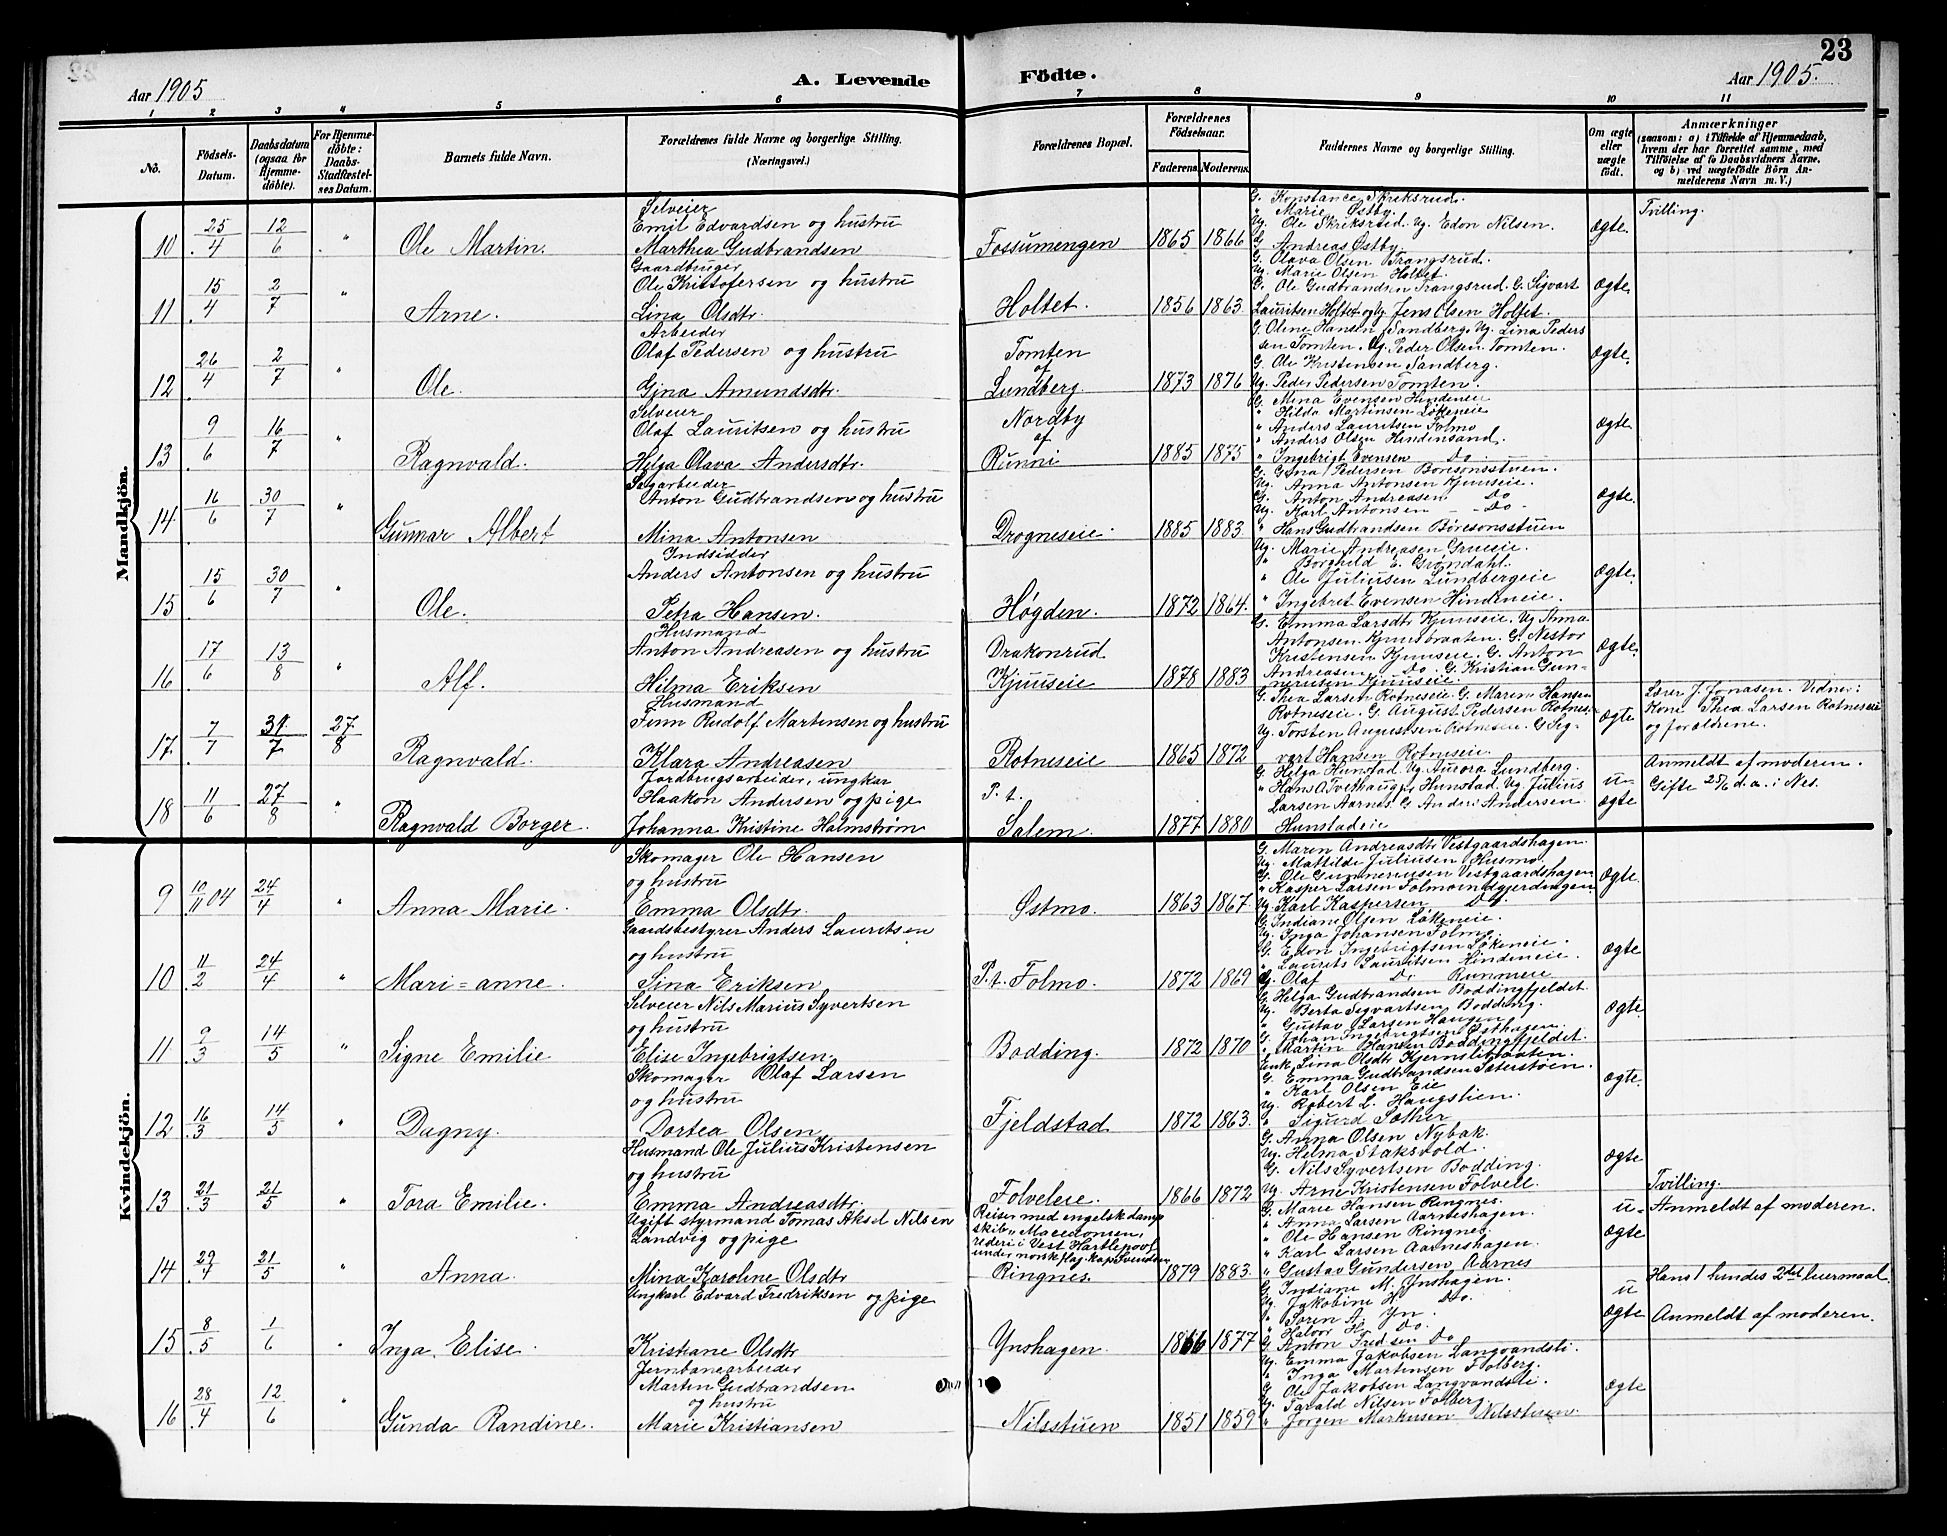 23
Aar 1905
A. Levende
Fødte.
Aar 1905.
1 2 3 4 5 6 7 8 9 10 11
No.
Fødsels-Datum.
Daabsdatum (ogsaa for Hjemmedøbte).
For Hjemmedøbte: Daabs-Stadfæstelses Datum.
Barnets fulde Navn.
Forældrenes fulde Navne og borgerlige Stilling. (Næringsvei.)
Forældrenes Bopæl.
Forældrenes Fødselsaar.
Faderens Moderens
Faddernes Navne og borgerlige Stilling.
Om ægte eller uægte født.
Anmærkninger
(saasom: a) i Tilfælde af Hjemmedaab, hvem der har forrettet samme, med Tilføielse af to Daabsvidners Navne, og b) ved uægtefødte Børn Anmelderens Navn m. V.)
Mandkjøn.
10 25/4 12/6 " Ole Martin. Selveier Emil Edvardsen og hustru Marthea Gudbrandsen Fossumengen 1865 1866
G. Konstance Skriksrud.
" Marie Østby.
Ug. Ole Skriksrud. Ug. Edon Nilsen.
G. Andreas Østby.
ægte. Tvilling.
11 15/4 2/7 " Arne. Gaardbruger Ole Kristofersen og hustru Lina Olsdtr. Holtet. 1856 1863
G. Olava Olsen Trangsrud.
Ug. Marie Olsen Holtet.
G. Ole Gudbrandsen Trangsrud. G. Sigvart
Lauritsen Holtet og Ug. Jens Olsen Holtet.
ægte.
12 26/4 2/7 " Ole. Arbeider Olaf Pedersen og hustru Gina Amundsdtr. Tomten af Lundberg. 1873 1876
G. Oline Hansen Sandberg. Ug. Lina Peders
sen Tomten. Ug. Peder Olsen Tomten.
G. Ole Kristensen Sandberg.
Ug. Peder Pedersen Tomten.
ægte.
13 9/6 16/7 " Ragnvald. Selveier Olaf Lauritsen og hustru Helga Olava Andersdtr. Nordby af Runni 1885 1875
G. Mina Evensen Hindeneie
" Hilda Martinsen Løkeneie
" Anders Lauritsen Folmo
" Anders Olsen Hindensand.
" Ingebrigt Evensen Do
ægte.
14 16/6 30/7 " Gunnar Albert Sagarbeider Anton Gudbrandsen og hustru Mina Antonsen Drogneseie 1885 1883
G. Gina Pedersen Boresonsstuen.
Ug. Anna Antonsen Kjuuseie.
G. Anton Andreasen Do
Ug. Karl Antonsen Do
" Hans Gudbrandsen Børesonsstuen
ægte.
15 15/6 30/7 " Ole. Indsidder Anders Antonsen og hustru Petra Hansen. Høgden. 1872 1864.
Ug. Marie Andreasen Grueeie.
" Borghild E. Grøndahl.
" Ole Juliusen Lundbergeie
" Ingebret Evensen Hindeneie.
ægte.
16 17/6 13/8 " Alf. Husmand Anton Andreasen og hustru Hilma Eriksen Drakonrud Kjuuseie 1878 1883
G. Emma Larsdtr Kjuuseie. Ug Anna
Antonsen Kjuusbraaten. G. Nestor
Kristensen Kjuuseie. G. Anton
Andreasen Do. G. Kristian Gun-
neriusen Kjuuseie.
ægte.
17 7/7 31/7 27/8 Ragnvald. Husmand Finn Rudolf Martensen og hustru Klara Andreasen Rotneseie 1865 1872
G. Thea Larsen Rotneseie. G. Maren Hansen
Rotneseie. G. August Pedersen Rotnes-
Ug. Torsten Augustsen Rotneseie. G Sig-
vart Hansen Rotneseie.
ægte
Lærer J. Jonasen. Vidner: Kone Thea Larsen Rotneseie og forældrene.
18 11/6 27/8 " Ragnvald Borger. Jordbrugsarbeider, ungkar Haakon Andersen og pige Johanna Kristine Halmstrøm P. t. Salem. 1877 1880
G. Helga Hunstad. Ug. Aurora Lundberg.
" Hans O. Tvethaug, Hunstad. Ug. Julius
Larsen Aarnes G. Anders Andersen
Hunstadeie
u-ægte
Anmeldt af moderen. Gifte 25/6 d. a. i Nes.
Kvindekjøn.
9 10/11 04 24/4 " Anna Marie. Skomager Ole Hansen og hustru Emma Olsdtr. Østmo. 1863 1867
G. Maren Andreasdtr Vestgaardshagen.
Ug. Mathilde Juliusen Husmo.
G. Ole Gunneriusen Vestgaardshagen
" Kasper Larsen Folmoindgjerdingen
Ug. Karl Kaspersen Do.
ægte.
10 11/2 24/4 " Mari=anne. Gaardsbestyrer Anders Lauritsen og hustru Lina Eriksen P. t. Folmo. 1872 1869
G. Indiane Olsen Løkeneie.
Ug. Inga Johansen Folmo.
G. Edon Ingebrigtsen Løkeneie.
" Laurits Lauritsen Hindeneie.
Ug. Olaf D. Runnieie
ægte
11 9/3 14/5 " Signe Emilie Selveier Nils Marius Syvertsen og hustru Elise Ingebrigtsen Bodding. 1872 1870
G. Helga Gudbrandsen Boddingfjeldet.
Ug. Berta Sigvartsen Bodding.
" Gustav Larsen Haugen
G. Johan Ingebrigtsen Østhagen.
" Martin Hansen Boddingfjeldet.
ægte.
12 16/3 14/5 " Dagny. Skomager Olaf Larsen og hustru Dortea Olsen Fjeldstad 1872 1863.
Enk. Lina Olsdtr Kjernslibraaten.
G. Emma Gudbrandsen Sæterstøen.
" Karl Olsen Eie
Ug. Robert L. Haugslien.
" Sigurd Sæther
ægte.
13 21/3 21/5 " Tora Emilie. Husmand Ole Julius Kristensen og hustru Emma Andreasdtr. Folveleie. 1866 1872
G. Anna Olsen Nybak.
Ug. Helma Staksvold.
G. Nils Syvertsen Bodding.
Ug. Arne Kristensen Folvell.
ægte Tvilling.
14 29/4 21/5 " Anna. Ugift styrmand Tomas Aksel Nilsen Landvig og pige Mina Karoline Olsdtr
Reiser med engelsk damp skib "Macedonien, rederi i Vest Hartlepool under norsk flag. kap. Svendsen Ringnes. 1879 1883.
G. Marie Hansen Ringnes.
" Anna Larsen Aarneshagen.
" Ole Hansen Ringnes.
" Karl Larsen Aarneshagen.
" Gustav Gundersen, Aarnes
u-ægte Anmeldt af moderen.
15 8/5 1/6 " Inga Elise. Ungkarl Edvard Fredriksen og pige Kristiane Olsdtr Ynshagen. 1866 1877
G. Indiane M. Ynshagen.
Ug. Jakobine H. Do.
" Søren A. Yn.
" Halvor H. Do.
G. Anton Fredsen Do
u ægte
Hans 1 hendes 2det leiermaal. Anmeldt af moderen.
16 28/4 12/6 " Gunda Randine. Jernbanearbeider Martin Gudbrandsen og hustru Marie Kristiansen Nilsstuen 1851 1859
Ug. Emma Jakobsen Langvandsli.
" Inga Martinsen Folberg.
G. Ole Jakobsen Langvandsli.
Ug. Tarald Nilsen Folberg.
" Jørgen Markusen Nilsstuen
ægte